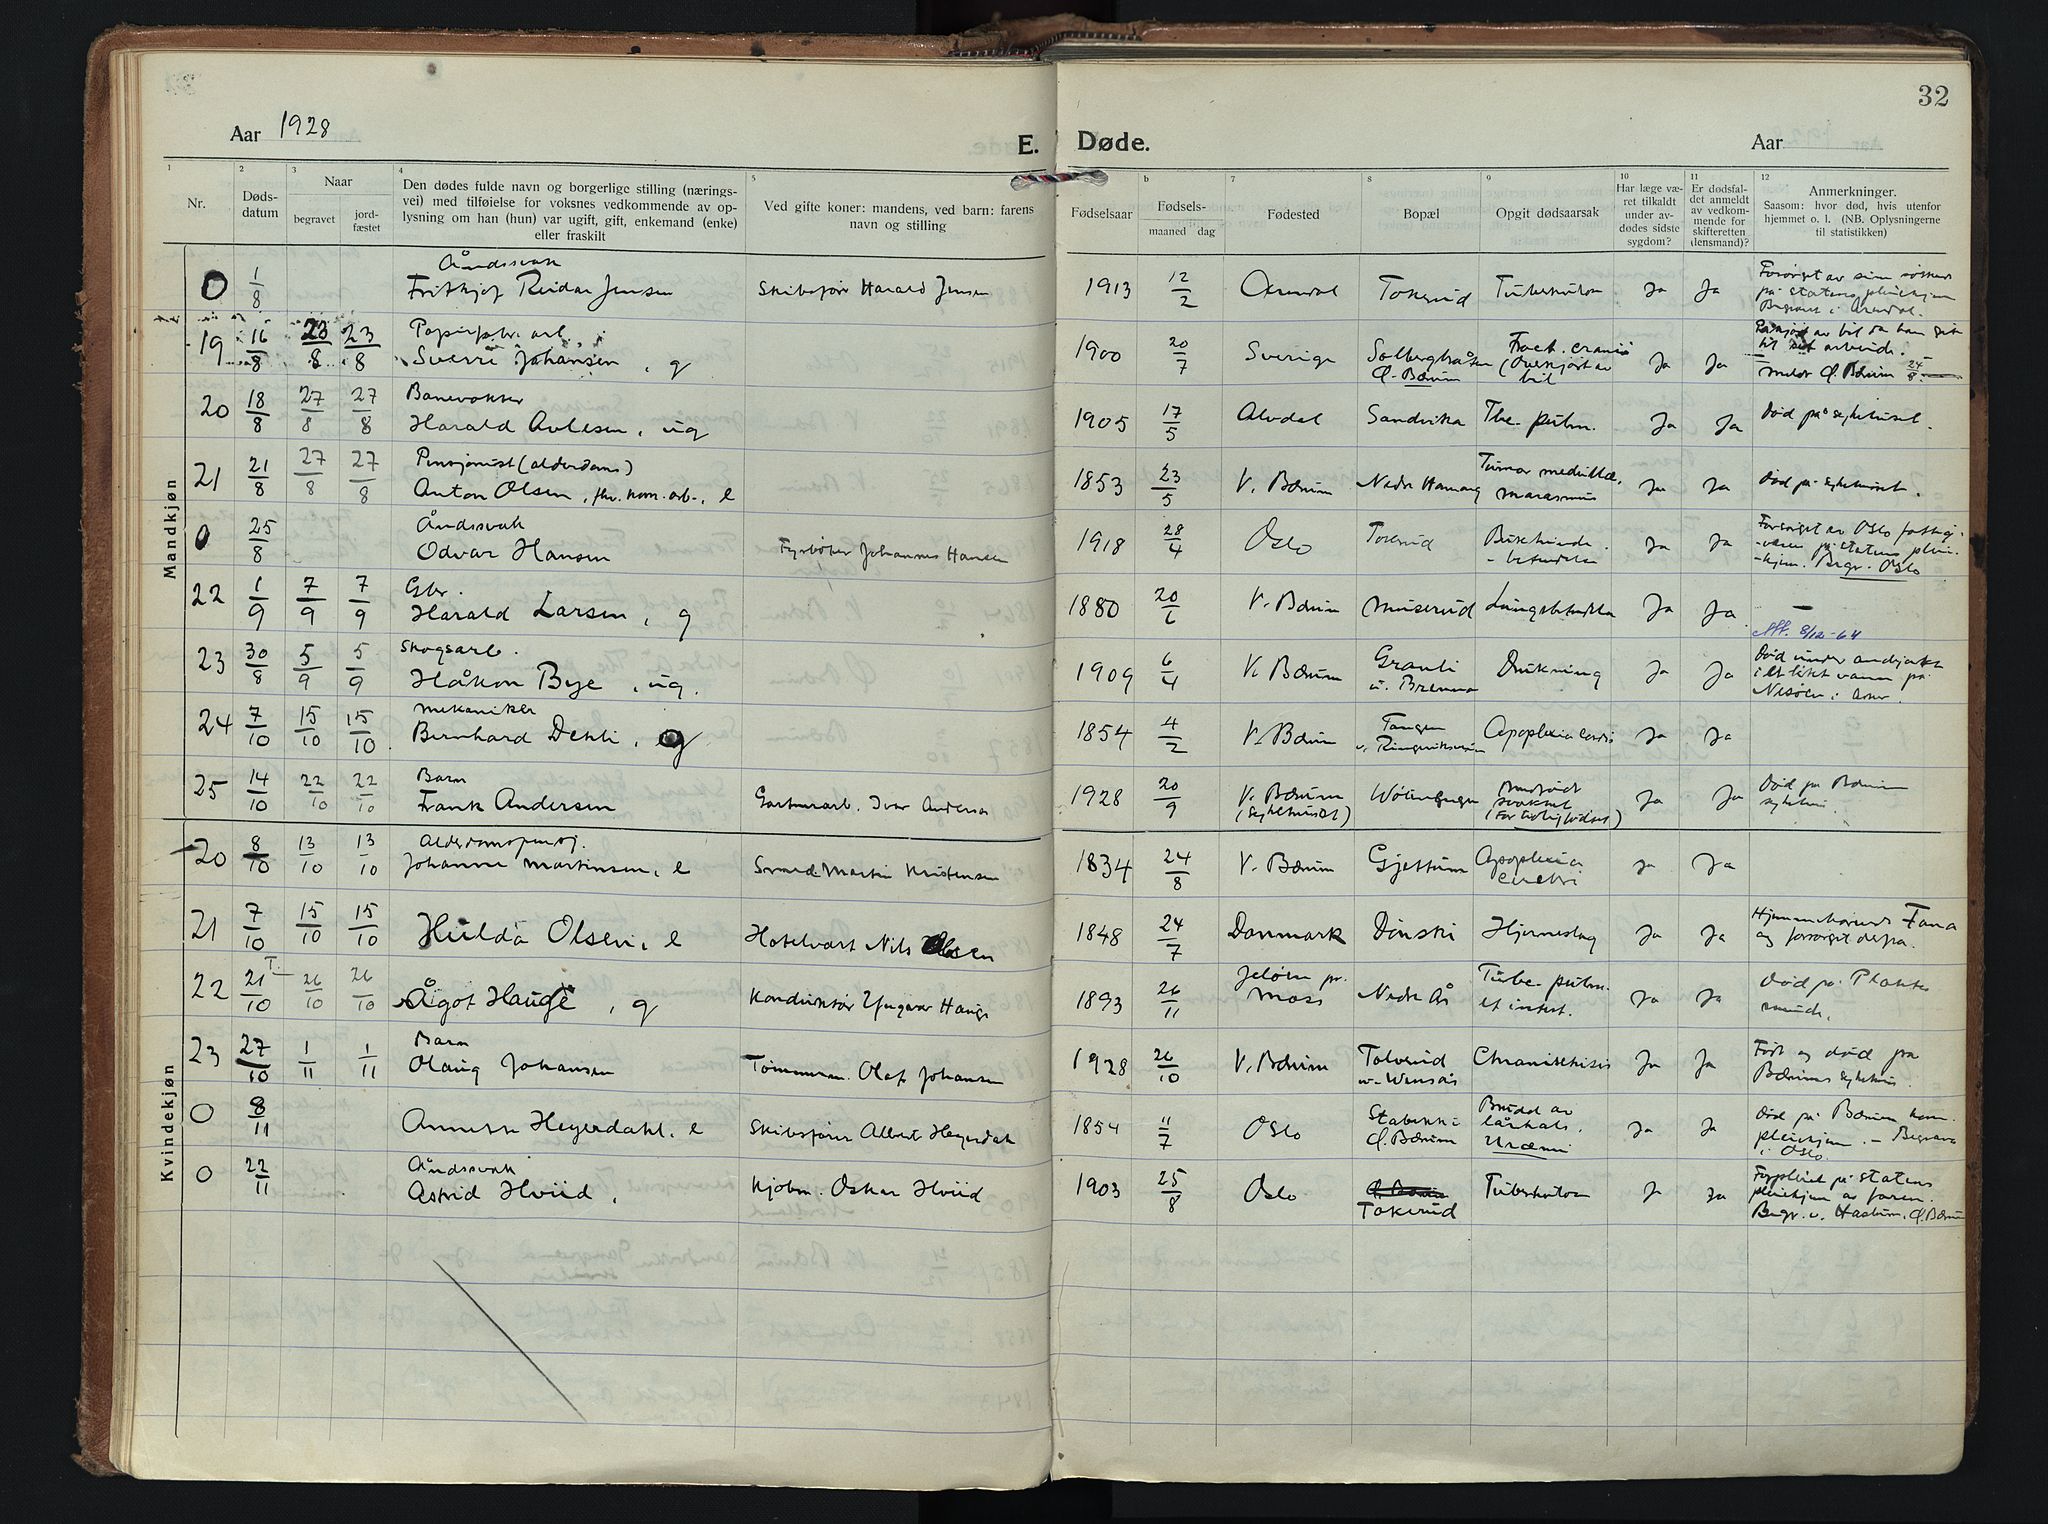 32
Aar 1928
E. Døde.
Aar
1 2 3 4 5 6 7 8 9 10 11 12
Nr.
Dødsdatum
Naar
begravet
jordfæstet
Den dødes fulde navn og borgerlige stilling (nærings-
vei) med tilføielse for voksnes vedkommende av op-
lysning om han (hun) var ugift, gift, enkemand (enke)
eller fraskilt
Ved gifte koner: mandens, ved barn: farens
navn og stilling
Fødselsaar
Fødsels-
maaned dag
Fødested
Bopæl
Opgit dødsaarsak
Har læge væ-
ret tilkaldt
under av-
dødes sidste
sygdom?
Er dødsfal-
det anmeldt
av vedkom-
mende for
skifteretten
(lensmand)?
Anmerkninger.
Saasom: hvor død, hvis utenfor
hjemmet o. l. (NB. Oplysningerne
til statistikken)
Mandkjøn
Åndssvak
0 1/8 Fritkjof Reidar Jensen Skibsfører Harald Jensen 1913 12/2 Arendal Tokerud Tuberkulose Ja Ja
på statens pleiehjem
Begravet i Arendal.
Papirfabr. arb.
19 16/8 23/8 23/8 Sverre Johansen, g 1900 20/7 Sverige Solbergbråten Ø. Bærum Fract. cranii (Overkjørt av bil Ja Ja
av bil da han gik
til sit arbeide.
Ø. Bærum 24/8
Banevokter
20 18/8 27/8 27/8 Harald Avlesen, ug 1905 17/5 Alvdal Sandvika Tbc. pulm. Ja Ja Død på sykehuset.
Pensjonist (alderdoms)
21 21/8 27/8 27/8 Anton Olsen, fhv. kom. arb., e 1853 23/5 V. Bærum Nedre Hamang Tumor medullae, marasmus Ja Ja Død på sykehuset.
Åndssvak
0 25/8 Odvar Hansen Fyrbøter Johannes Hansen 1918 28/4 Oslo Tokerud Bukhinde-betendelse Ja Ja
Forsørget av Oslo fattig-
-vesen på statens pleie-
-hjem. Begr. Oslo
Gbr.
22 1/9 7/9 7/9 Harald Larsen, g 1880 20/6 V. Bærum Muserud Lungebetendelse Ja Ja —
8/12-64
Skogsarb.
23 30/8 5/9 5/9 Håkon Bye, ug. 1909 6/4 V. Bærum Granli u. Brenna Drukning Ja Ja
Død under andjakt
i et litet vann på
Nesøen i Asker.
Mekaniker
24 7/10 15/10 15/10 Bernhard Dehli, g 1854 4/2 V. Bærum Tangen v. Ringeriksveien Apoplexia cordis Ja Ja
Barn
25 14/10 22/10 22/10 Frank Andersen Gartnerarb. Ivar Andersen 1928 20/9 V. Bærum (Sykehuset) Medfødt svakhet (For tidlig födsel) Ja Ja Død på Bærum
Kvindekjøn
Alderdomspensj.
20 8/10 13/10 13/10 Johanne Martinsen, e Smed Martin Kristensen 1834 24/8 V. Bærum Gjettum Apoplexia cerebri Ja Ja
21 7/10 15/10 15/10 Hulda Olsen, e Hotelvært Nils Olsen 1848 24/7 Danmark Dønski Hjerneslag Ja Ja
Fana
og forsørget derfra.
22 21/10 T. 26/10 26/10 Ågot Hauge, g Konduktør Yngvar Hauge 1893 26/11 Jeløen pr. Moss Nedre Ås Tuberc. pulm. et intest. Ja Ja Død på
Barn
23 27/10 1/11 1/11 Olaug Johansen Tømmerm. Olaf Johansen 1928 26/10 V. Bærum Tokerud Ja Ja
Født og død på
Bærums sykehus.
0 8/11 Heyerdahl, e Skibsfører Albert Heyerdahl 1854 11/7 Oslo Stabekk i Ø. Bærum Brudd av lårhals. Uræmi Ja Ja
Død på Bærum kom.
pleiehjem. – Begravet
i Oslo.
Åndssvak
0 22/11 Astrid Hviid, Kjøbm. Oskar Hviid 1903 25/8 Oslo Tokerud Tuberkulose Ja Ja
Forpleiet på statens
pleiehjem av faren.
Begr. v. Haslum, Ø. Bærum